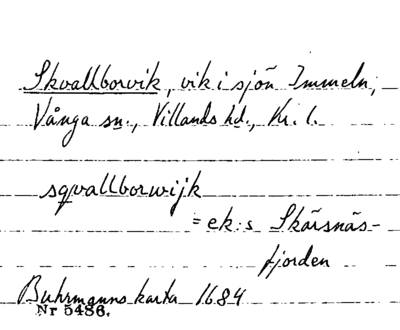 Skvallborvik, vik i sjön Immeln,
Vånga sn., Villands hd., Kr. l.
sqvallborwijk
= ek:s Skärsnäs-
fjorden
Buhrmanns karta 1684
Nr 5486.